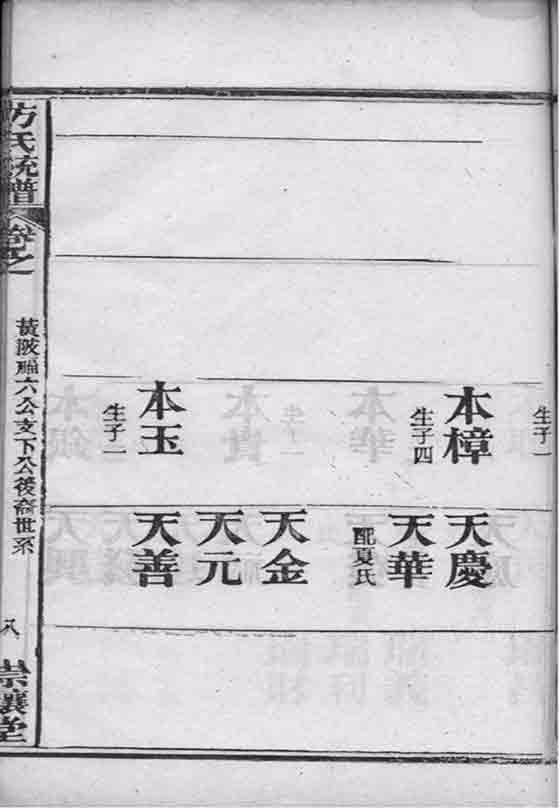 生子一
本樟
生子四
本玉
生子一
天慶
天華
配夏氏
天金
天元
天善
方氏統譜
卷之
黃陂福六公支下公後裔世系
八
崇讓堂